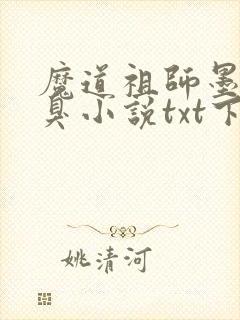 魔道祖師墨
臭小説txt下
姚清河